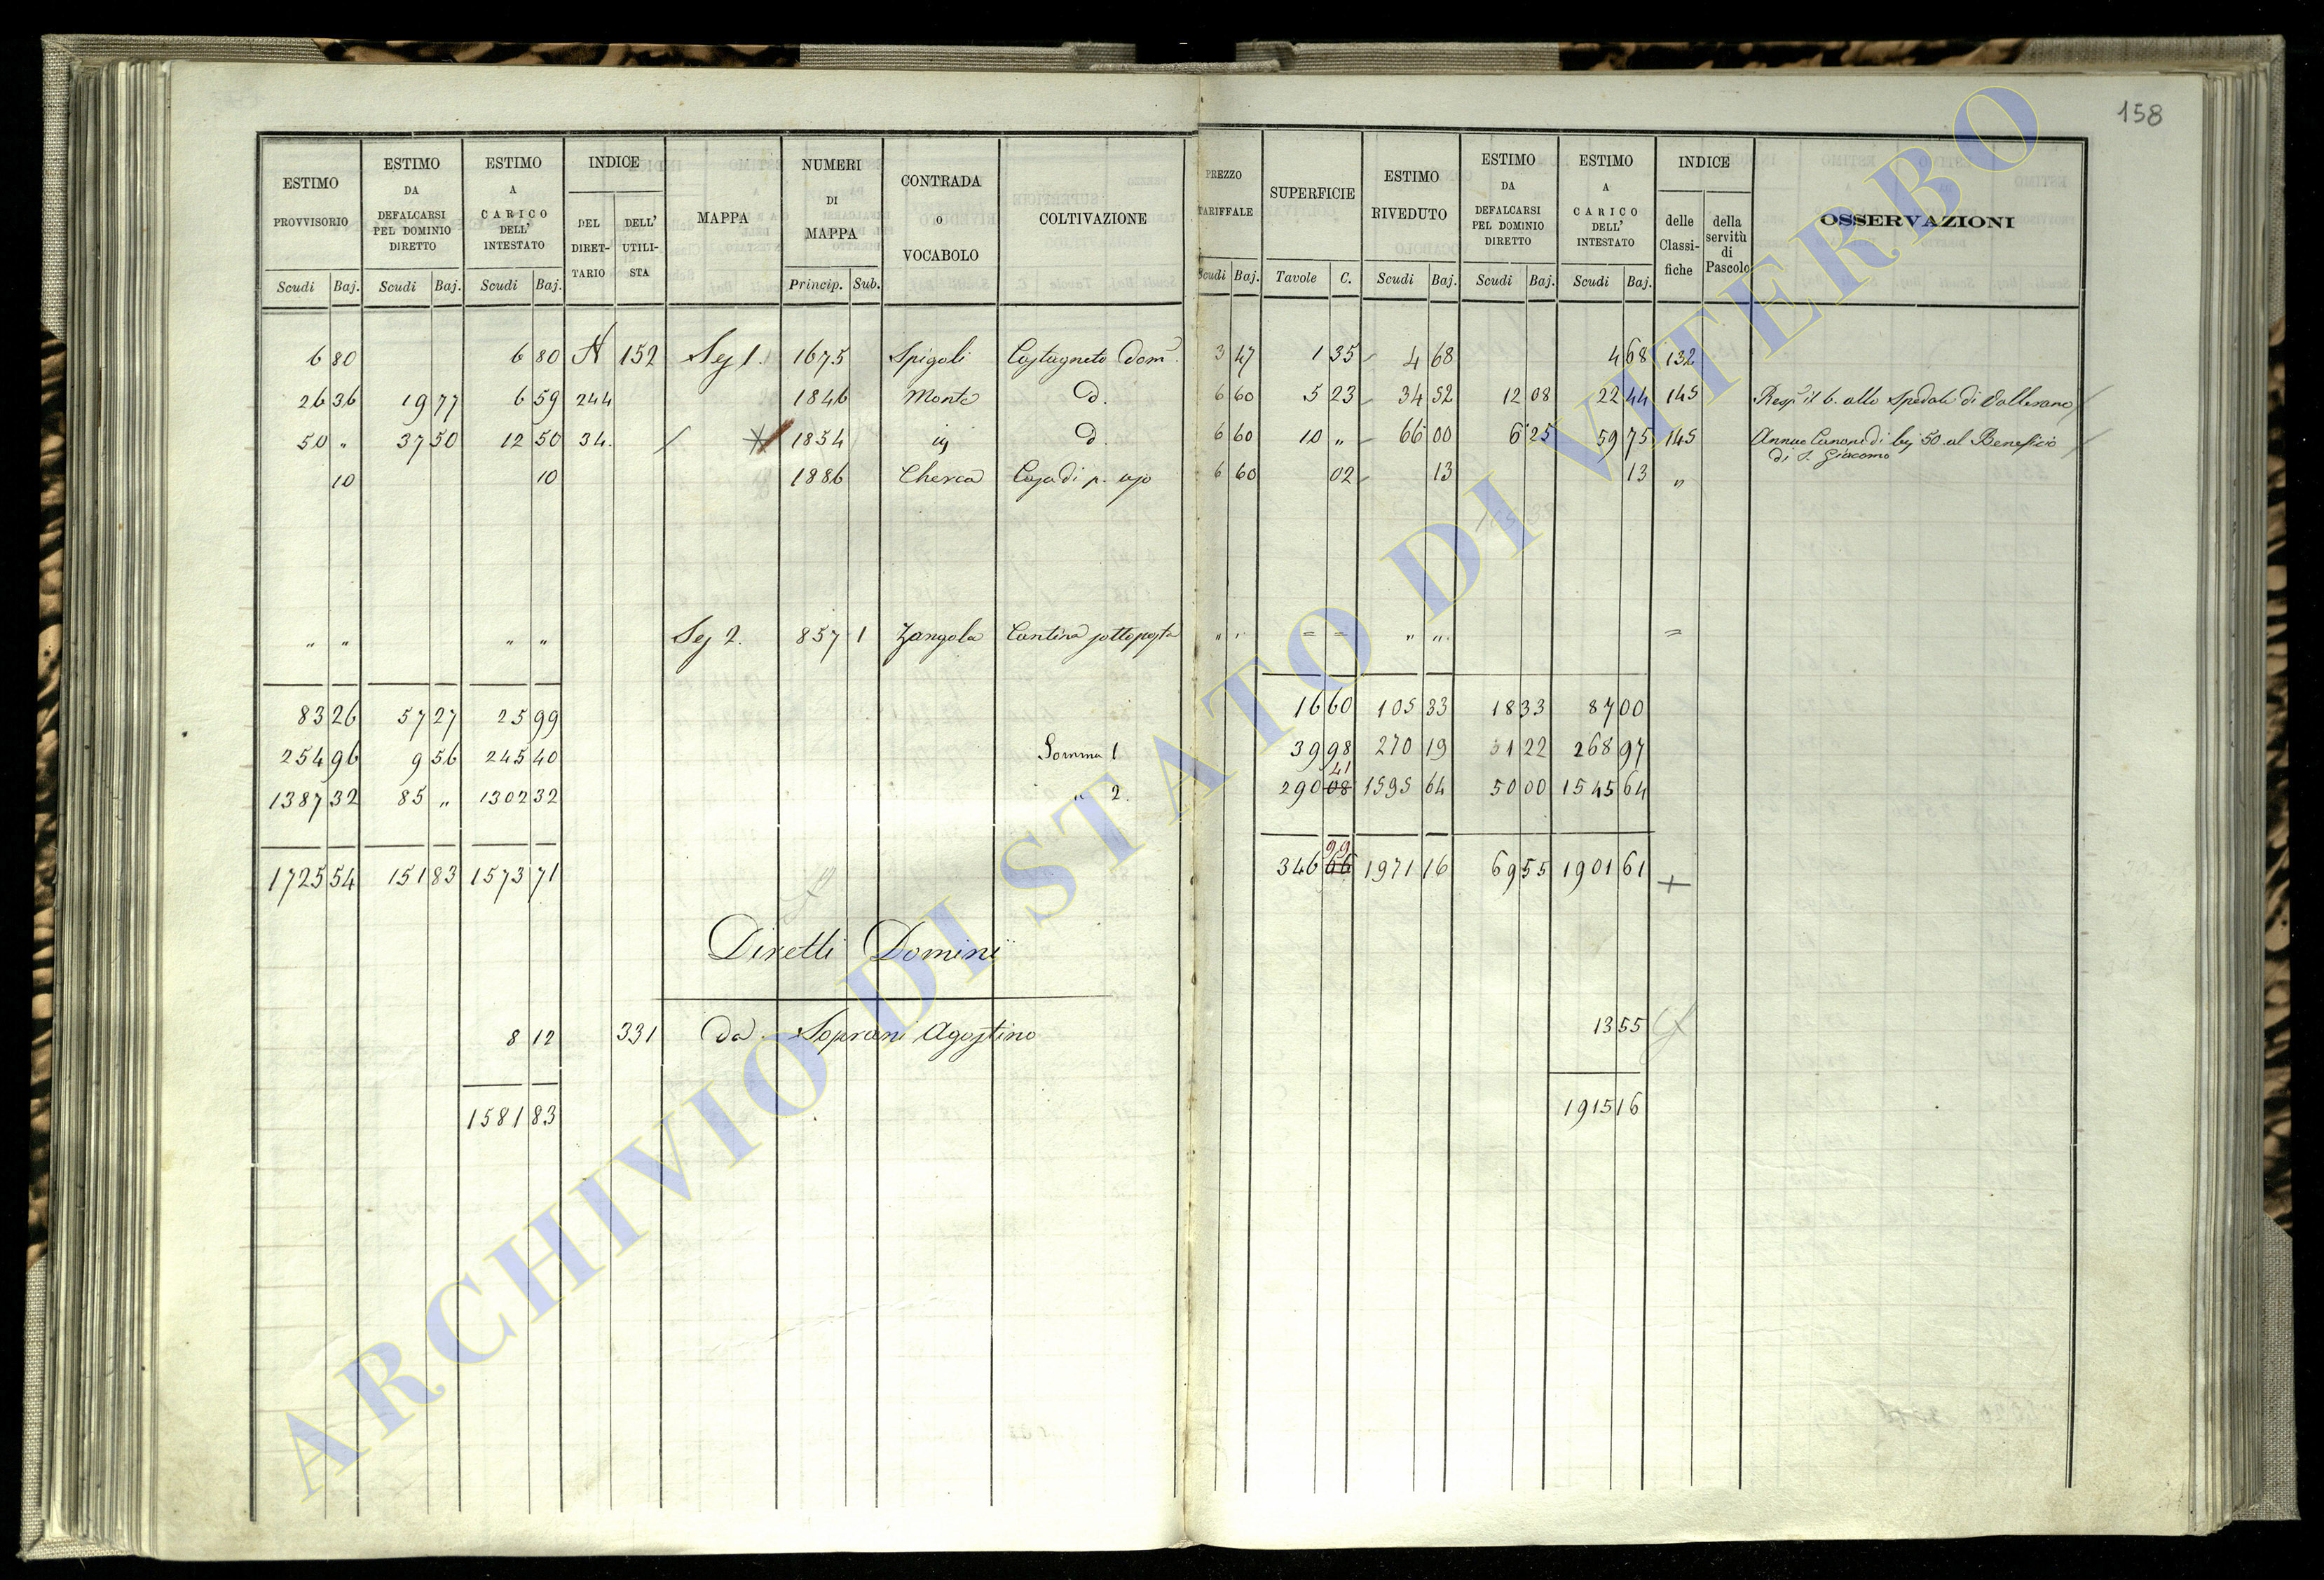 158
ESTIMO PROVVISORIO | ESTIMO DA DEFALCARSI PEL DOMINIO DIRETTO | ESTIMO A CARICO DELL' INTESTATO | INDICE DEL DIRETTARIO | DELL' UTILISTA | MAPPA | NUMERI DI MAPPA | CONTRADA o VOCABOLO | COLTIVAZIONE | PREZZO TARIFFALE | SUPERFICIE | ESTIMO RIVEDUTO | ESTIMO DA DEFALCARSI PEL DOMINIO DIRETTO | ESTIMO A CARICO DELL' INTESTATO | INDICE delle Classifiche | della servitù di Pascolo | OSSERVAZIONI
Scudi Baj. | Scudi Baj. | Scudi Baj. | Princip. Sub. | Scudi Baj. | Tavole C. | Scudi Baj. | Scudi Baj. | Scudi Baj.
6 80 | 6 80 | 152 | Sez 1. | 1675 | Spigoli | Castagneto Dom. | 3 47 | 1 35 | 4 68 | 4 68 | 132
26 36 | 19 77 | 6 59 | 244 | 1846 | Monte | d. | 6 60 | 5 23 | 34 52 | 12 08 | 22 44 | 145 | Resp. il 6. allo Spedale di Vallerano
50 „ | 37 50 | 12 50 | 34. | 1854 | d. | 6 60 | 10 „ | 66 00 | 6 25 | 59 75 | 145 | Annuo Canone di bj 50 al Beneficio
di S. Giacomo
10 | 10 | 1886 | Chersa | Casa di p. uso | 6 60 | 02 | 13 | 13 | „
„ „ | „ „ | Sez 2. | 857 1 | Zangola | Cantina sottoposta | „ „ | = = | „ „ | =
83 26 | 57 27 | 25 99 | 16 60 | 105 33 | 18 33 | 87 00
254 96 | 9 56 | 245 40 | Somma 1 | 39 98 | 270 19 | 31 22 | 268 97
41
1387 32 | 85 „ | 1302 32 | „ 2. | 290 08 | 1595 64 | 50 00 | 1545 64
99
1725 54 | 151 83 | 1573 71 | 346 66 | 1971 16 | 69 55 | 1901 61 +
Diretti Dominii
8 12 | 331 | Da Soprani Agostino | 13 55
1581 83 | 1915 16
ARCHIVIO DI STATO DI VITERBO